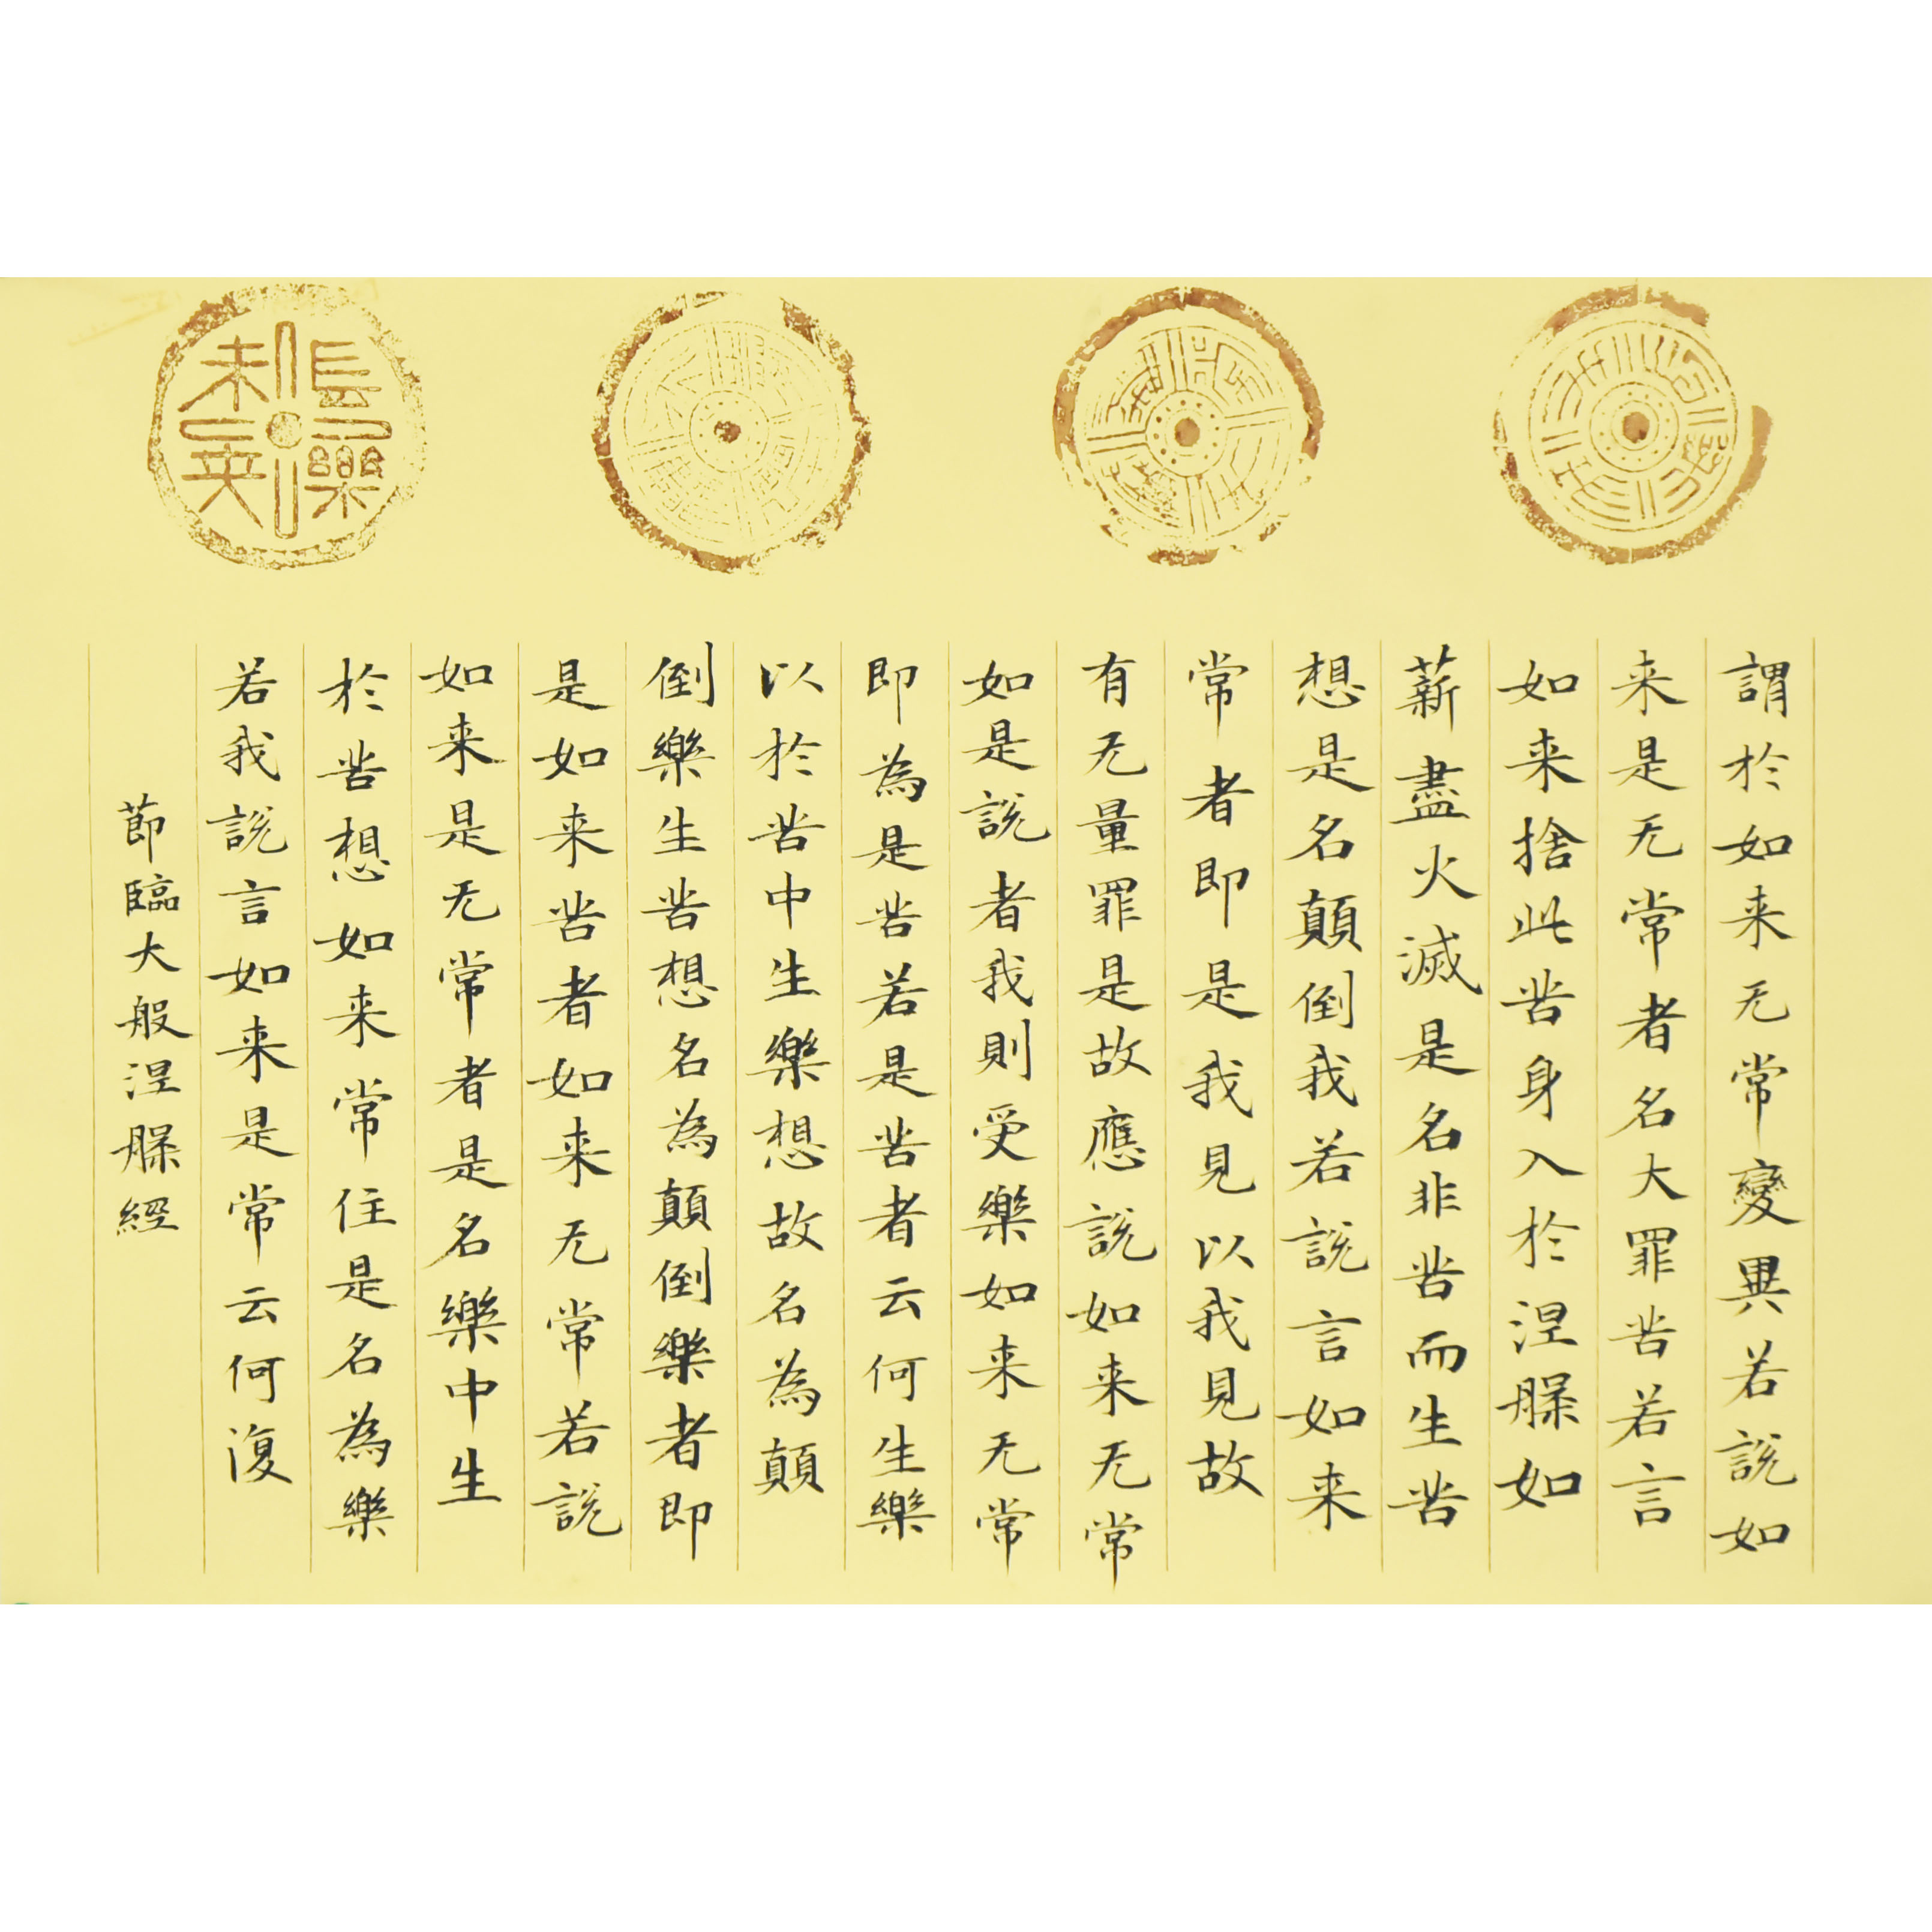 謂於如来无常變異若說如
来是无常者名大罪苦若言
如来捨此苦身入於涅槃如
薪盡火滅是名非苦而生苦
想是名顛倒我若說言如来
常者即是我見以我見故
有无量罪是故應說如来无常
如是說者我則受樂如来无常
即為是苦若是苦者云何生樂
以於苦中生樂想故名為顛
倒樂生苦想名為顛倒樂者即
是如来苦者如来无常若說
如来是无常者是名樂中生
於苦想如来常住是名為樂
若我說言如来是常云何復
節臨大般涅槃經
長樂未央